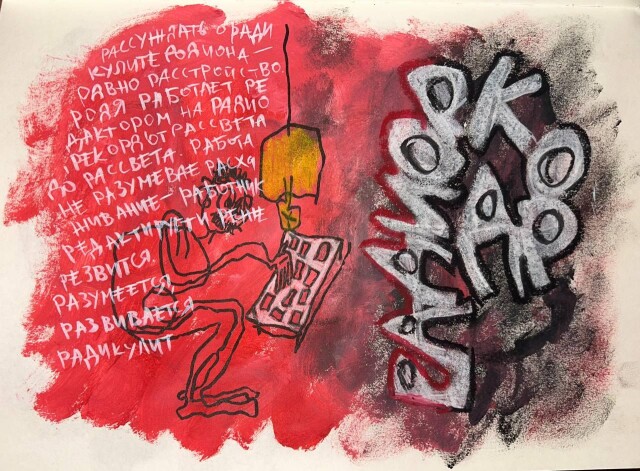 РАССУЖДАТЬ О РАДИ
КУЛИТЕ РОДИОНА —
РАВНО РАССТРОЙСТВО
РОДЯ РАБОТАЕТ РЕ
ДАКТОРОМ НА РАДИО
"РЕКОРД" ОТ РАССВЕТА
ДО РАССВЕТА. РАБОТА
НЕ РАЗУМЕВАЕ РАСХА
ЖИВАНИЕ — РАБОТНИК
РЕДАКТИРУЕТ И РЕЖЕ
РЕЗВИТСЯ.
РАЗУМЕЕТСЯ,
РАЗВИВАЕТСЯ
РАДИКУЛИТ